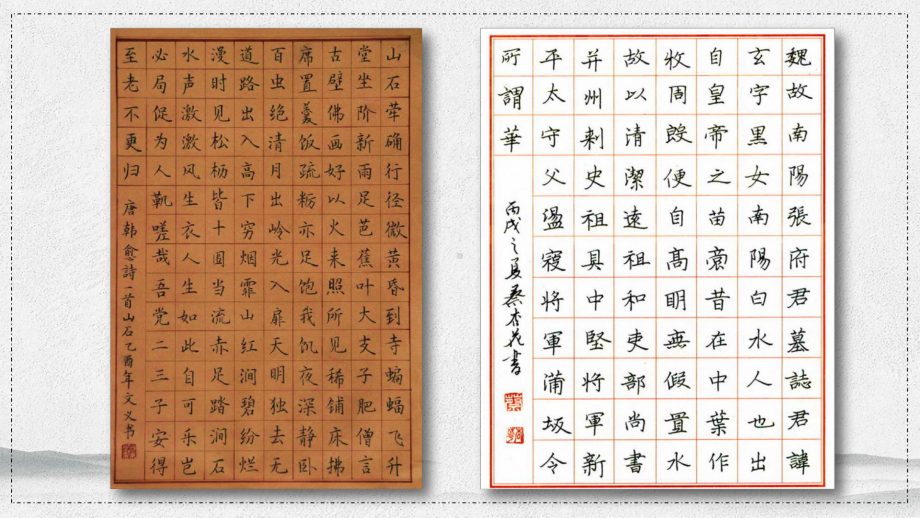 山石荦确行径微黄昏到寺蝙蝠飞升
堂坐阶新雨足芭蕉叶大支子肥僧言
古壁佛画好以火来照所见稀铺床拂
席置羹饭疏粝亦足饱我饥夜深静卧
百虫绝清月出岭光入扉天明独去无
道路出入高下穷烟霏山红涧碧纷烂
漫时见松枥皆十围当流赤足踏涧石
水声激激风生衣人生如此自可乐岂
必局促为人靰嗟哉吾党二三子安得
至老不更归
唐韩愈詩一首山石乙酉年文义书
魏故南陽張府君墓誌君諱
玄字黑女南陽白水人也出
自皇帝之苗裔昔在中葉作
牧周殷便自髙明無假置水
故以清潔遠祖和吏部尚書
并州刺史祖具中堅將軍新
平太守父盪寇將軍蒲坂令
所謂華
丙戌之夏蔡杏花書